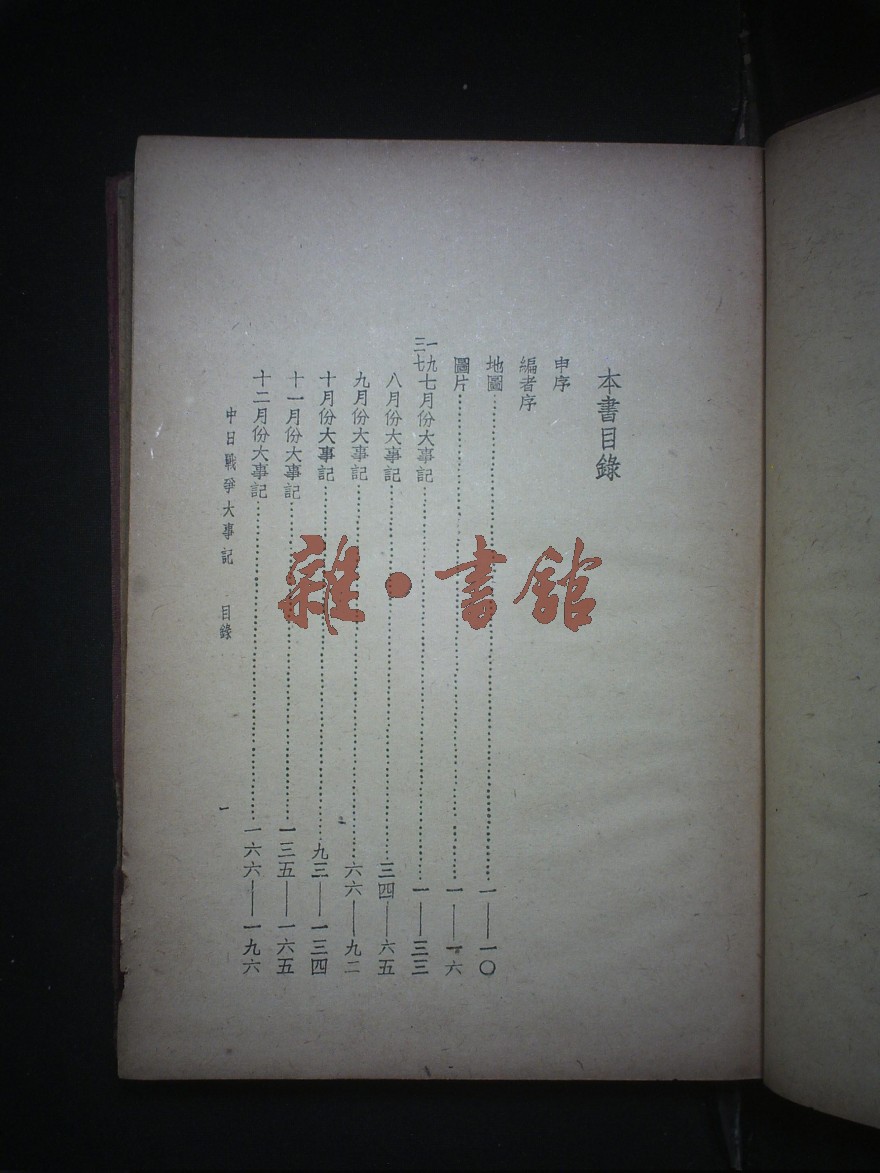 本書目錄
申序
編者序
地圖……一——一〇
圖片……一——一六
一九三七七月份大事記……一——三三
八月份大事記……三四——六五
九月份大事記……六六——九二
十月份大事記……九三——一三四
十一月份大事記……一三五——一六五
十二月份大事記……一六六——一九六
中日戰爭大事記 目錄 一
雜·書館